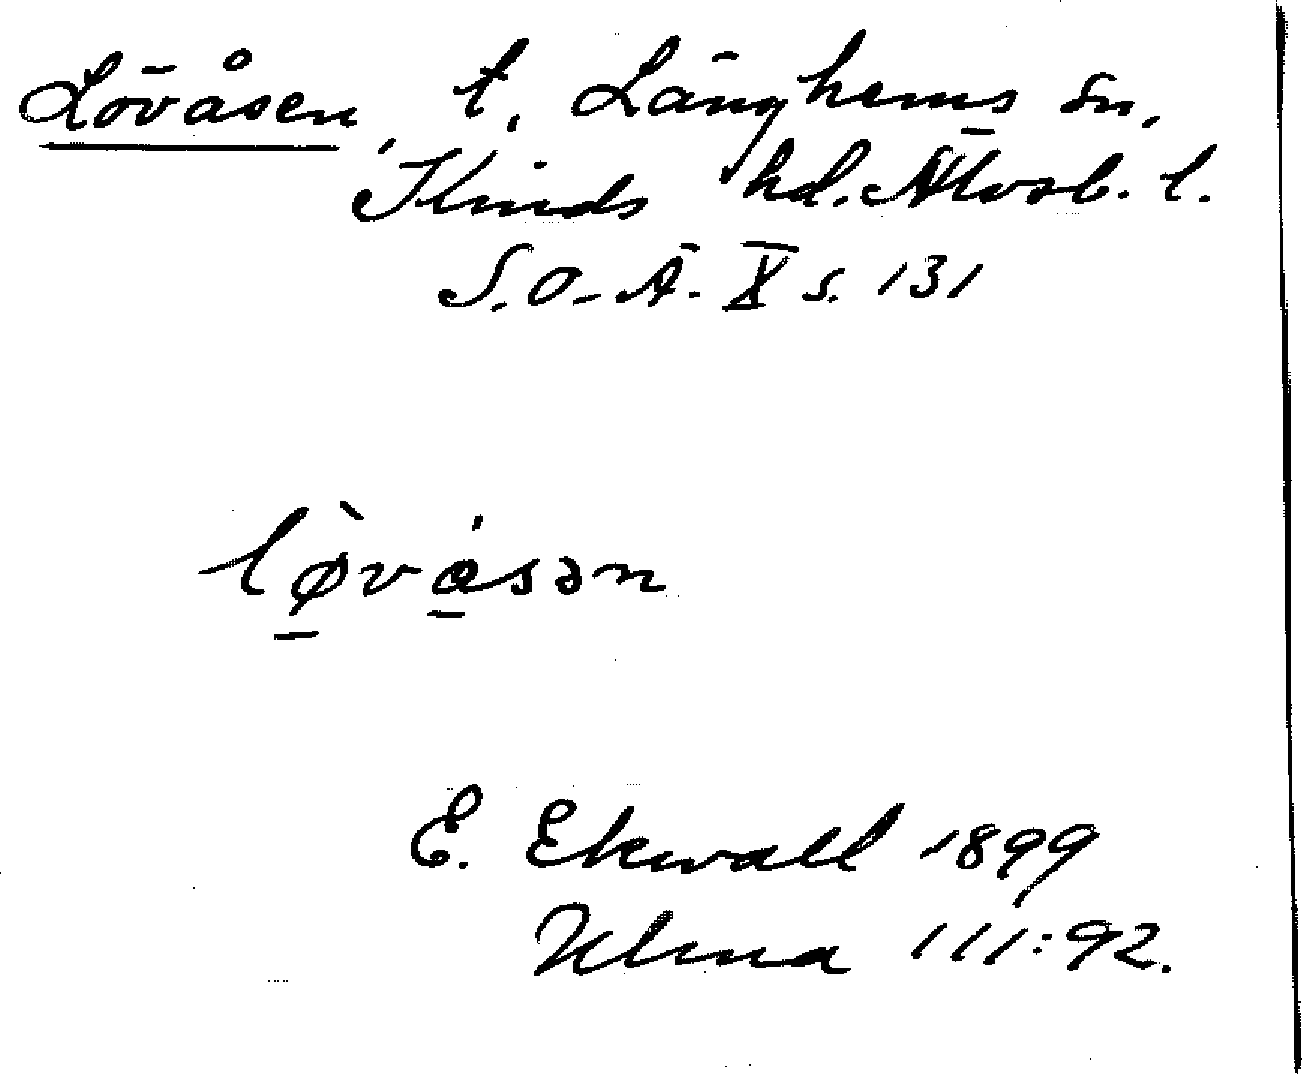 Lövåsen, t. Länghems sn,
Kinds hd. Älvsb. l.
S.O.-Ä. X s. 131
lø̱̀vǻ̱sən
E. Ekwall 1899
Ulma 111:92.